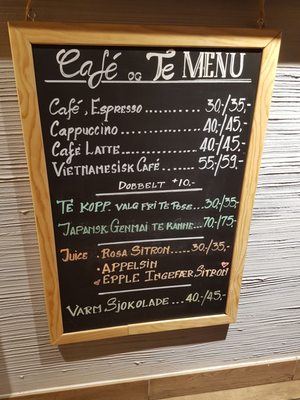 Café og Te MENU
Café, Espresso .......... 30,-/35,-
Cappuccino .......... 40,-/45,-
Café Latte .......... 40,-/45,-
Vietnamesisk Café ...... 55/59,-
Dobbelt +10,-
Te kopp. valg fri te pose ... 30/35,-
Japansk Genmai te kanne ... 70/75,-
Juice . Rosa Sitron ....... 30/35,-
. Appelsin
. Eple Ingefær Sitron
Varm Sjokolade .... 40,-/45,-